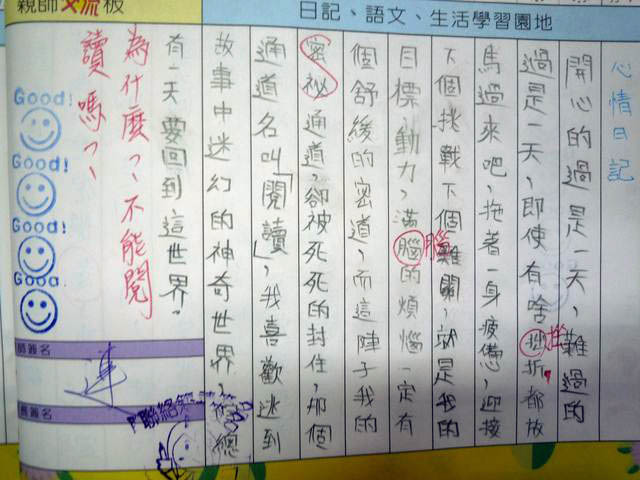 親師交流板
日記、語文、生活學習園地
心情日記
開心的過是一天，難過的
過是一天，即使有啥挫折都放
挫
馬過來吧，拖著一身疲憊，迎接
下個挑戰下個難關，就是我的
目標，動力，滿腦的煩惱一定有
腦
個舒後的密道，而這陣子我的
密祕通道，卻被死死的封住，那個
通道名叫「閱讀」，我喜歡迷到
故事中迷幻的神奇世界，總
有一天要回到這世界。
為什麼？不能閱
讀嗎？
Good!
Good!
Good!
Good!
師簽名
簽名
聯絡簿